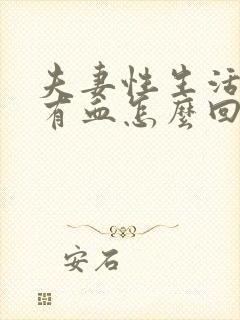 夫妻性生活
有血怎麼回
安石